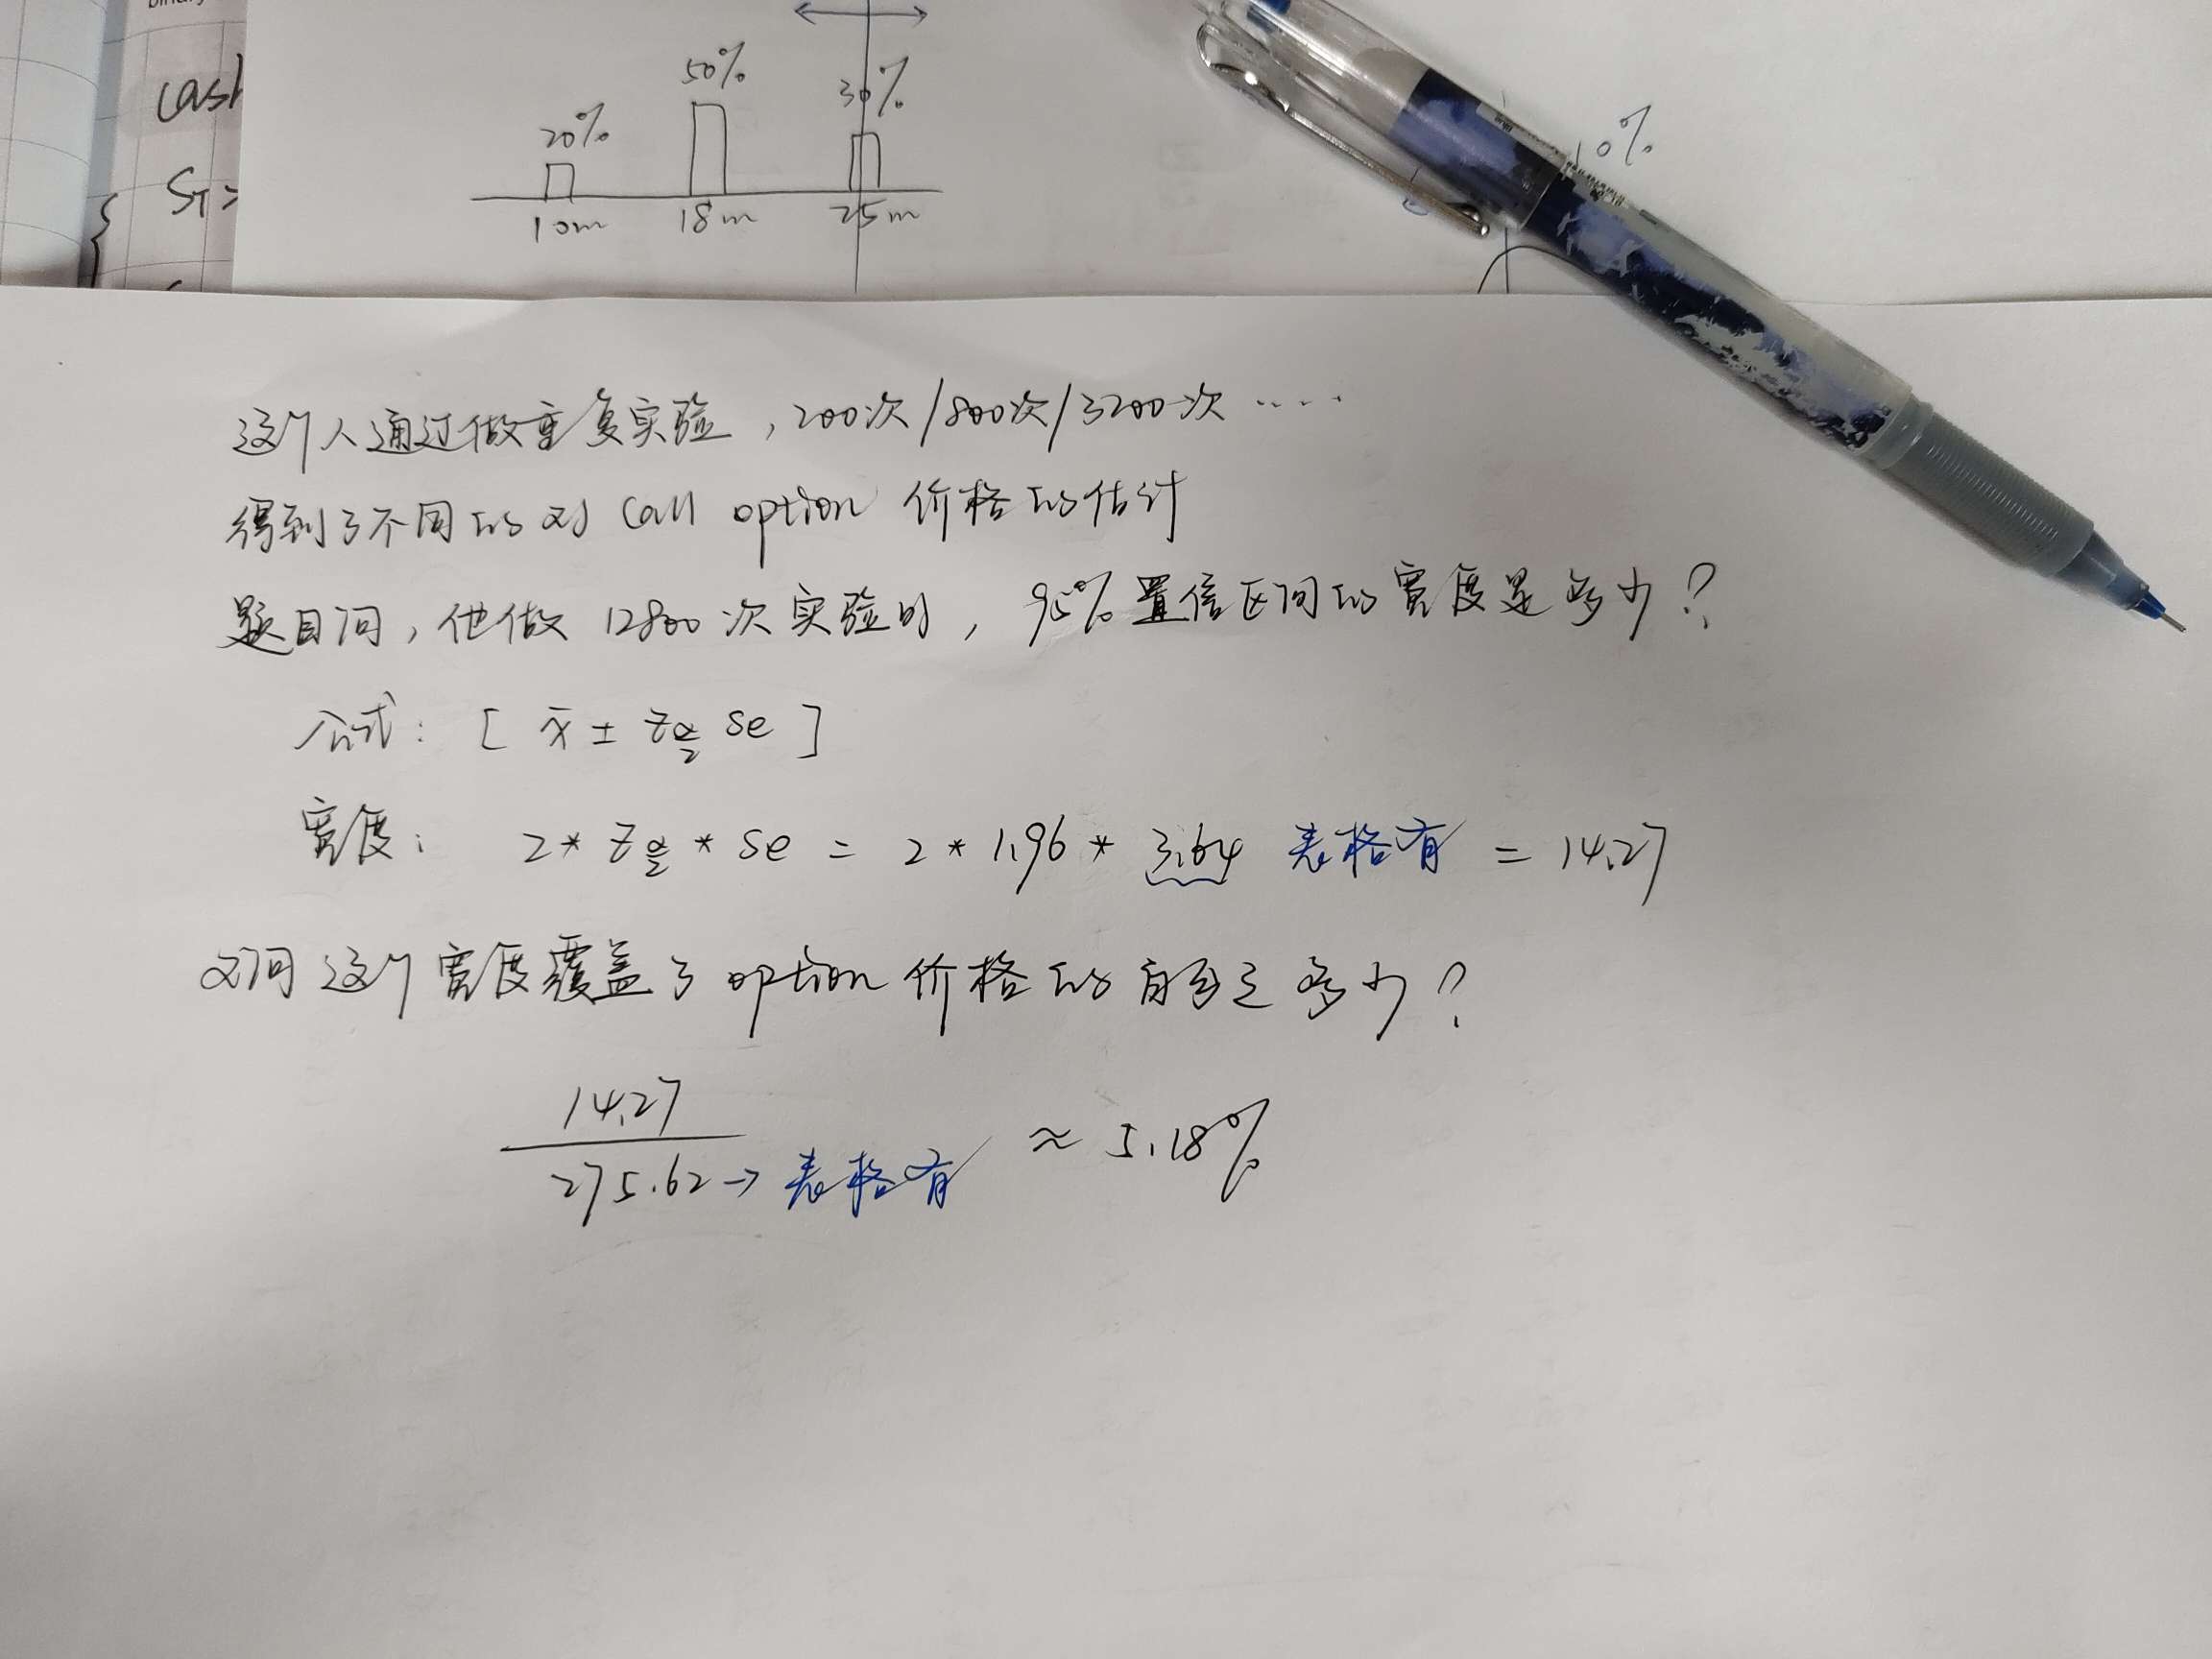 cash
S_T >
20%
50%
30%
10m
18m
25m
10%
这个人通过做重复实验，200次/800次/3200次……
得到了不同的对 Call option 价格的估计
题目问，他做 12800 次实验时，95%置信区间的宽度是多少？
公式：[ x̄ ± z_{α/2} se ]
宽度：2 * z_{α/2} * se = 2 * 1.96 * 3.64 表格有 = 14.27
又问这个宽度覆盖了 option 价格的百分之多少？
14.27
275.62 → 表格有 ≈ 5.18%